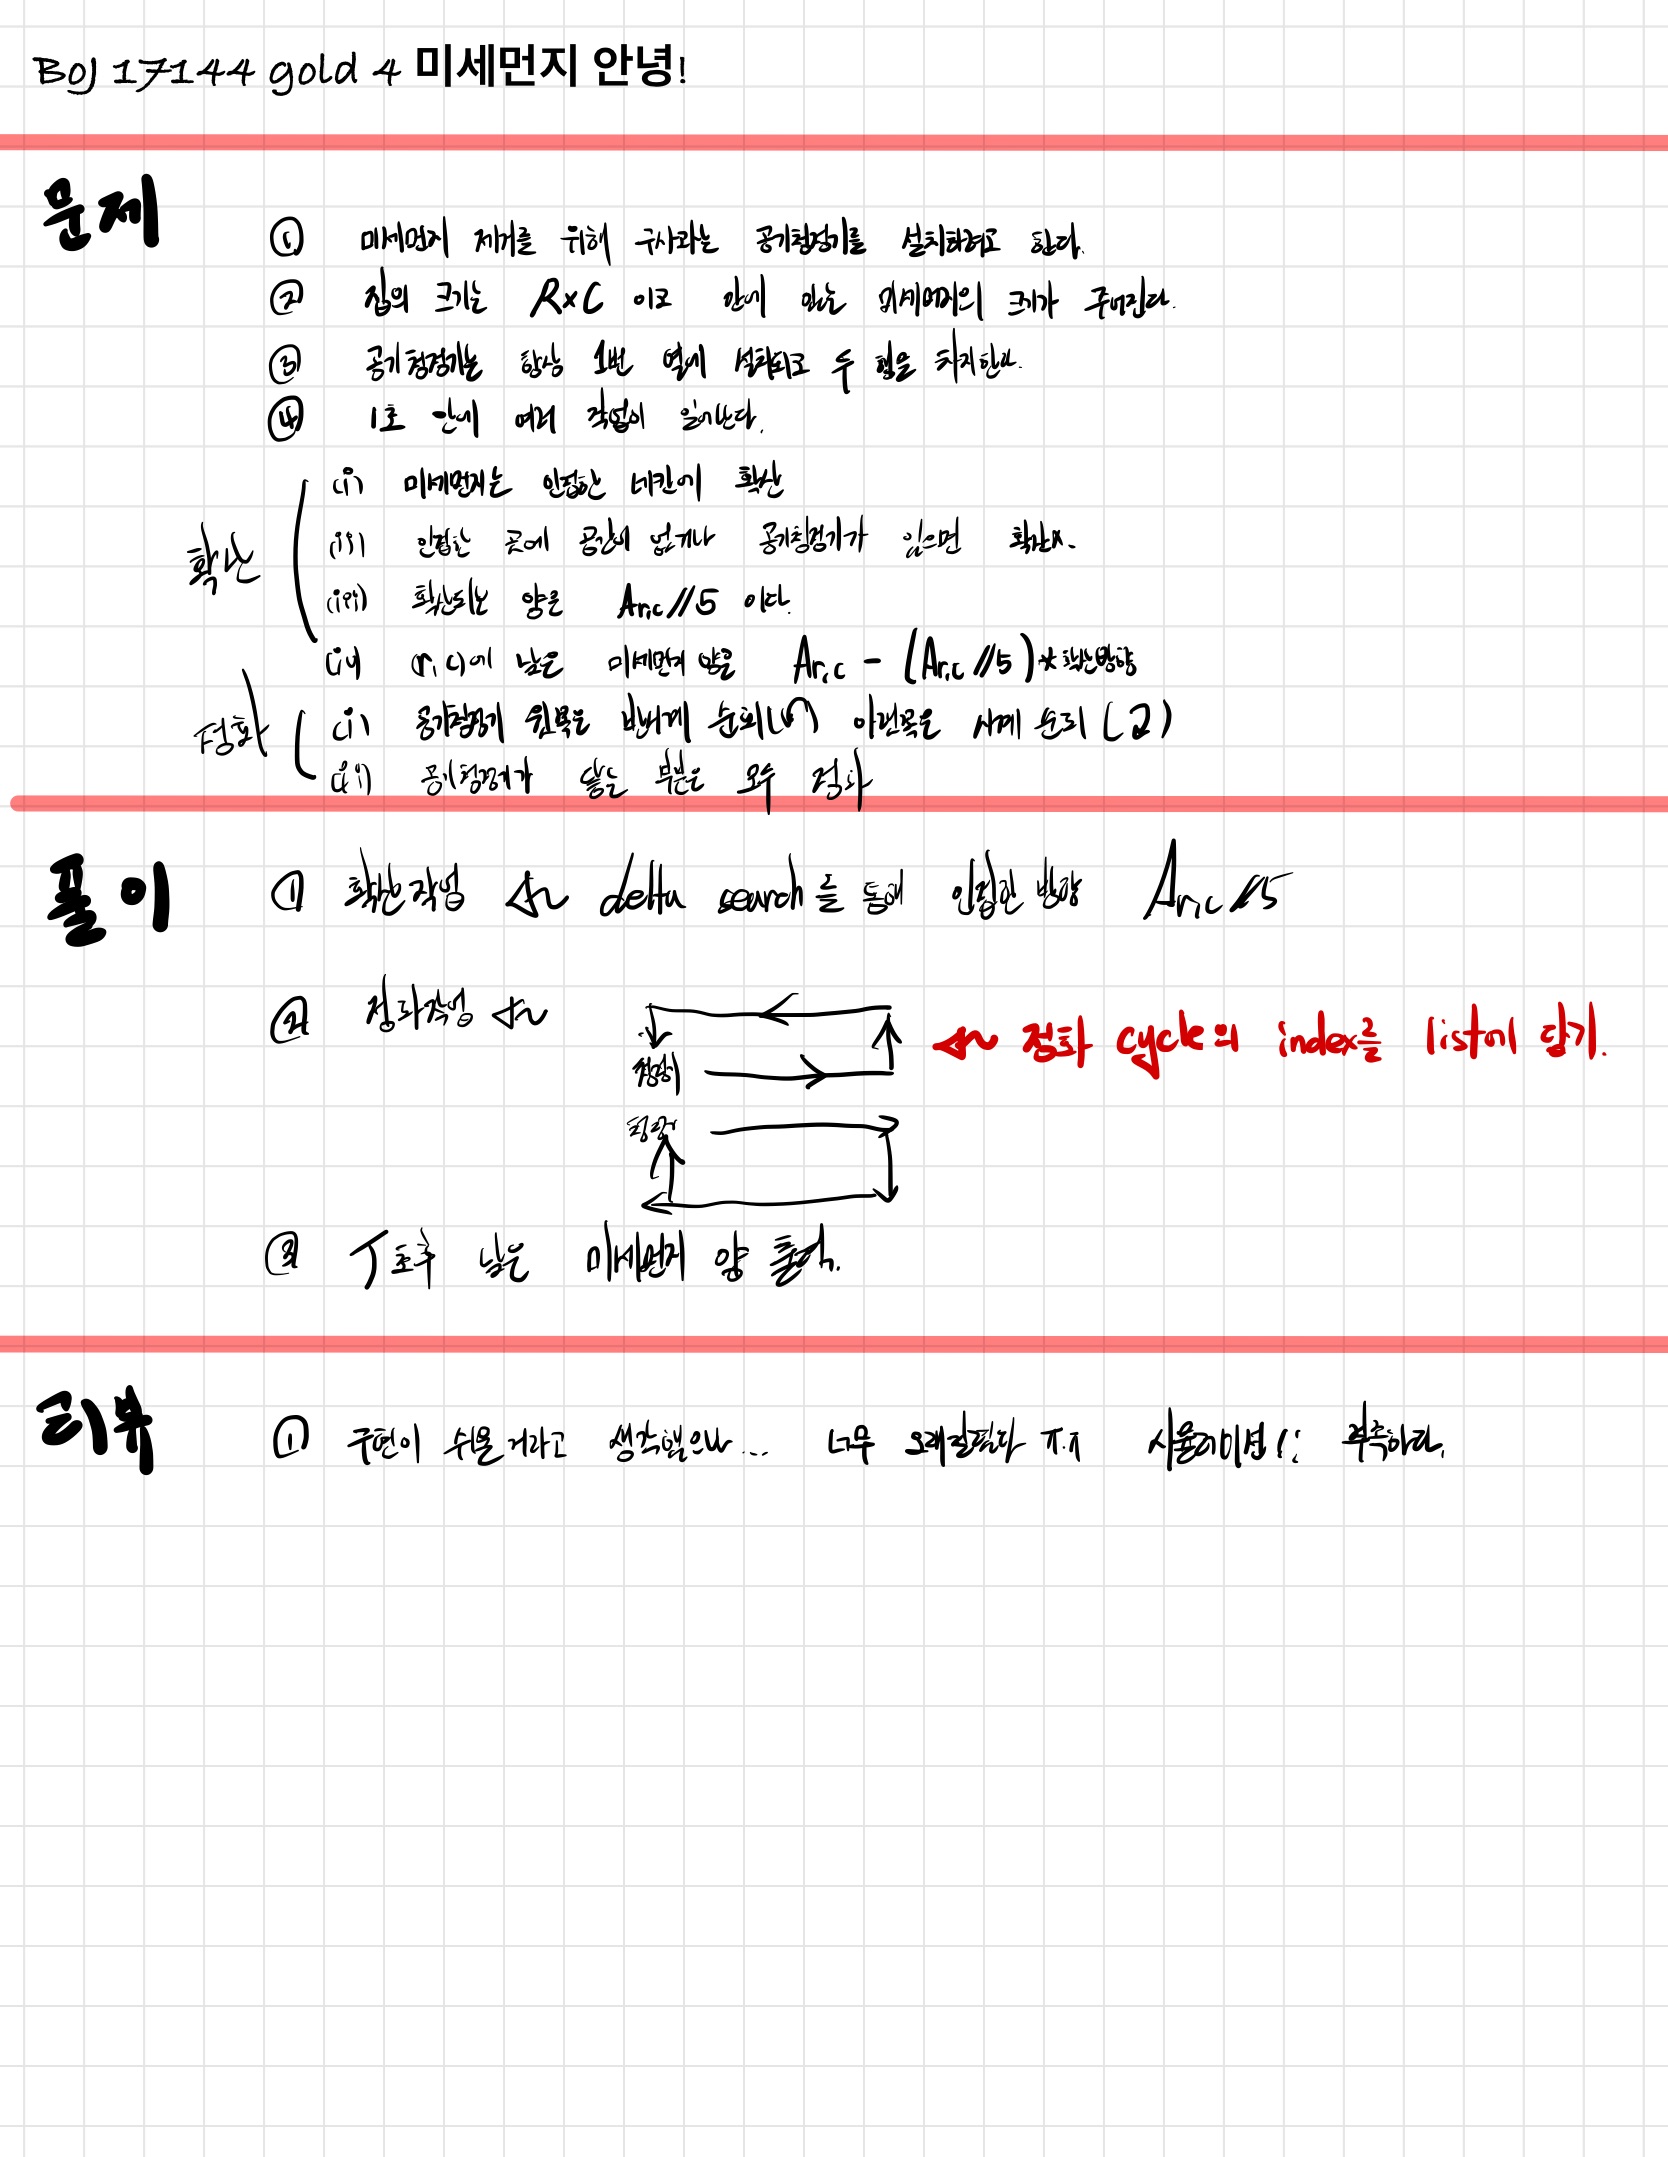 BOJ 17144 gold 4 미세먼지 안녕!
문제
① 미세먼지 제거를 위해 구사과는 공기청정기를 설치하려고 한다.
② 집의 크기는 R×C 이고 안에 있는 미세먼지의 크기가 주어진다.
③ 공기청정기는 항상 1번 열에 설치되고 두 행을 차지한다.
④ 1초 안에 여러 작업이 일어난다.
확산
(i) 미세먼지는 인접한 네칸에 확산
(ii) 인접한 곳에 공간이 없거나 공기청정기가 있으면 확산x.
(iii) 확산되는 양은 Ar,c//5 이다.
(iv) (r,c)에 남은 미세먼지 양은 Ar,c - (Ar,c//5)*확산방향
정화
(i) 공기청정기 윗쪽은 반시계 순회(↶) 아랫쪽은 시계 순회(2)
(ii) 공기청정기가 닿는 부분은 모두 정화
풀이
① 확산작업 delta search를 통해 인접한 방향 Ar,c//5
② 정화작업
청정기
청정기
정화 cycle의 index를 list에 담기.
③ T초후 남은 미세먼지 양 출력.
리뷰
① 구현이 쉬울거라고 생각했으나... 너무 오래걸렸다 ㅠ.ㅠ 시뮬레이션!! 부족하다.